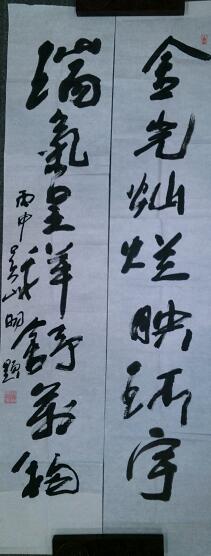 金光灿烂映环宇
瑞氣呈祥舒萬物
丙申吴山明題